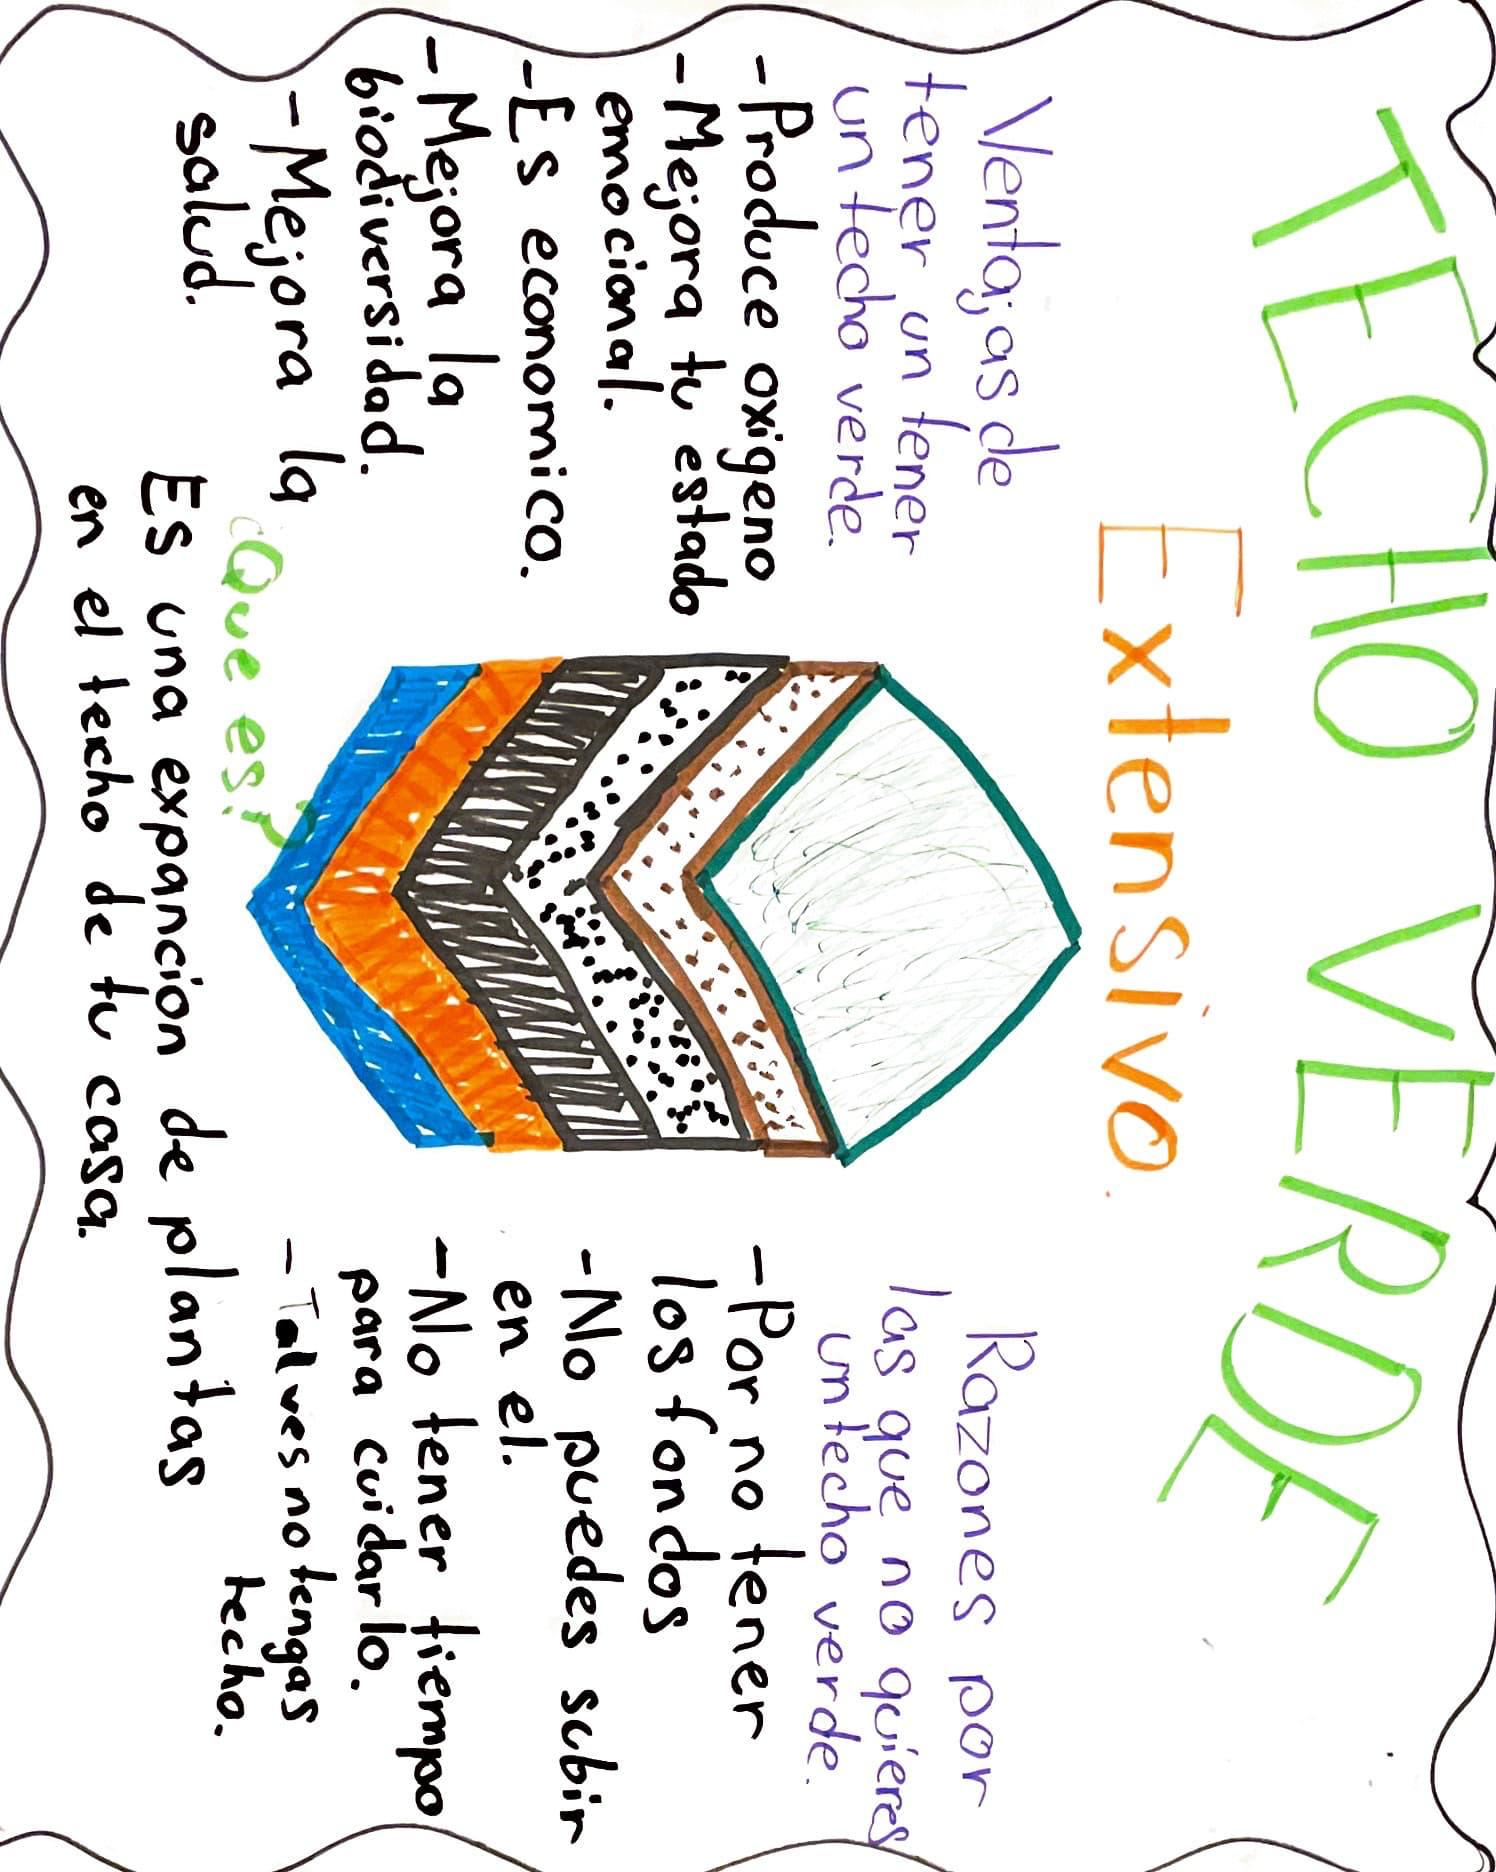 TECHO VERDE
Extensivo.
Ventajas de
tener un tener
un techo verde.
- Produce oxigeno
- Mejora tu estado
emocional.
- Es economico.
- Mejora la
biodiversidad.
- Mejora la
salud.
Razones por
las que no quieres
un techo verde.
- Por no tener
los fondos
- No puedes subir
en el.
- No tener tiempo
para cuidarlo.
- Tal ves no tengas
techo.
¿Que es?
Es una expancion de plantas
en el techo de tu casa.